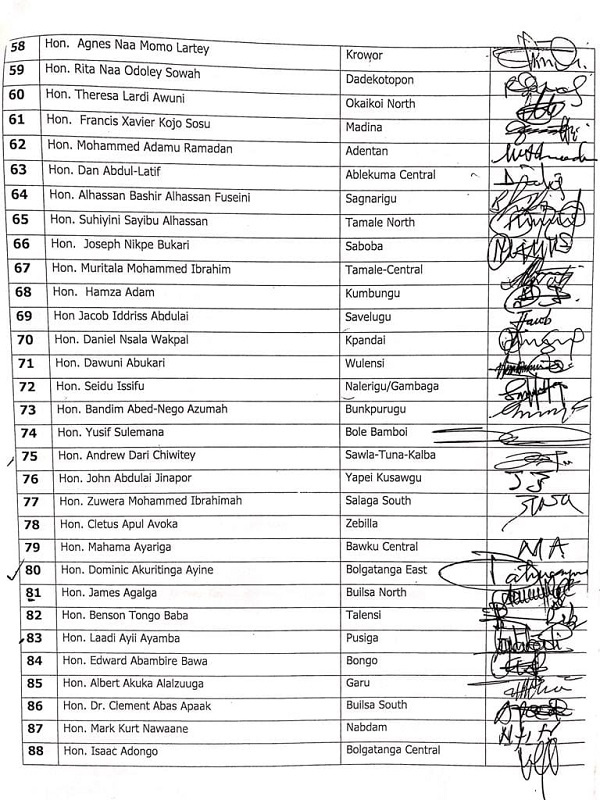 58 Hon. Agnes Naa Momo Lartey Krowor
59 Hon. Rita Naa Odoley Sowah Dadekotopon
60 Hon. Theresa Lardi Awuni Okaikoi North
61 Hon. Francis Xavier Kojo Sosu Madina
62 Hon. Mohammed Adamu Ramadan Adentan
63 Hon. Dan Abdul-Latif Ablekuma Central
64 Hon. Alhassan Bashir Alhassan Fuseini Sagnarigu
65 Hon. Suhiyini Sayibu Alhassan Tamale North
66 Hon. Joseph Nikpe Bukari Saboba
67 Hon. Muritala Mohammed Ibrahim Tamale-Central
68 Hon. Hamza Adam Kumbungu
69 Hon Jacob Iddriss Abdulai Savelugu
70 Hon. Daniel Nsala Wakpal Kpandai
71 Hon. Dawuni Abukari Wulensi
72 Hon. Seidu Issifu Nalerigu/Gambaga
73 Hon. Bandim Abed-Nego Azumah Bunkpurugu
74 Hon. Yusif Sulemana Bole Bamboi
75 Hon. Andrew Dari Chiwitey Sawla-Tuna-Kalba
76 Hon. John Abdulai Jinapor Yapei Kusawgu
77 Hon. Zuwera Mohammed Ibrahimah Salaga South
78 Hon. Cletus Apul Avoka Zebilla
79 Hon. Mahama Ayariga Bawku Central MA
80 Hon. Dominic Akuritinga Ayine Bolgatanga East
81 Hon. James Agalga Builsa North
82 Hon. Benson Tongo Baba Talensi
83 Hon. Laadi Ayii Ayamba Pusiga
84 Hon. Edward Abambire Bawa Bongo
85 Hon. Albert Akuka Alalzuuga Garu
86 Hon. Dr. Clement Abas Apaak Builsa South
87 Hon. Mark Kurt Nawaane Nabdam
88 Hon. Isaac Adongo Bolgatanga Central